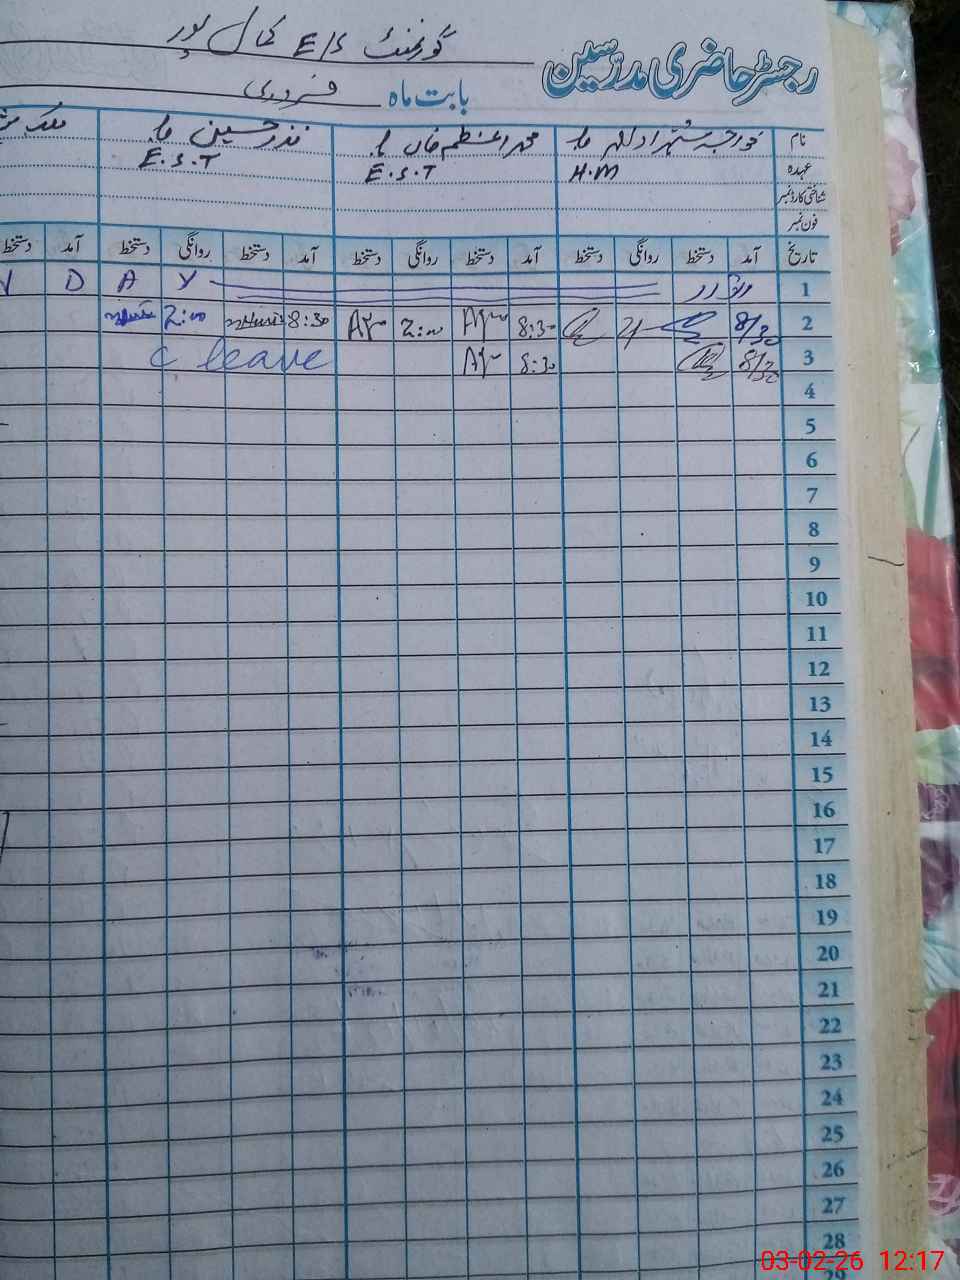 رجسٹر حاضری مدرسین
گورنمنٹ E/S کمال پور
بابت ماہ فروری
نام محمد اعظم خاں نذر حسین ملک
عہدہ H.M E.S.T E.S.T
شناختی کارڈ نمبر
فون نمبر
تاریخ آمد دستخط روانگی دستخط آمد دستخط روانگی دستخط آمد دستخط روانگی دستخط آمد دستخط
1 Y A D
2 8/30 8:30 2:00 8:30 2:00
3 8/30 8:30 C leave
4
5
6
7
8
9
10
11
12
13
14
15
16
17
18
19
20
21
22
23
24
25
26
27
28
29
03-02-26 12:17